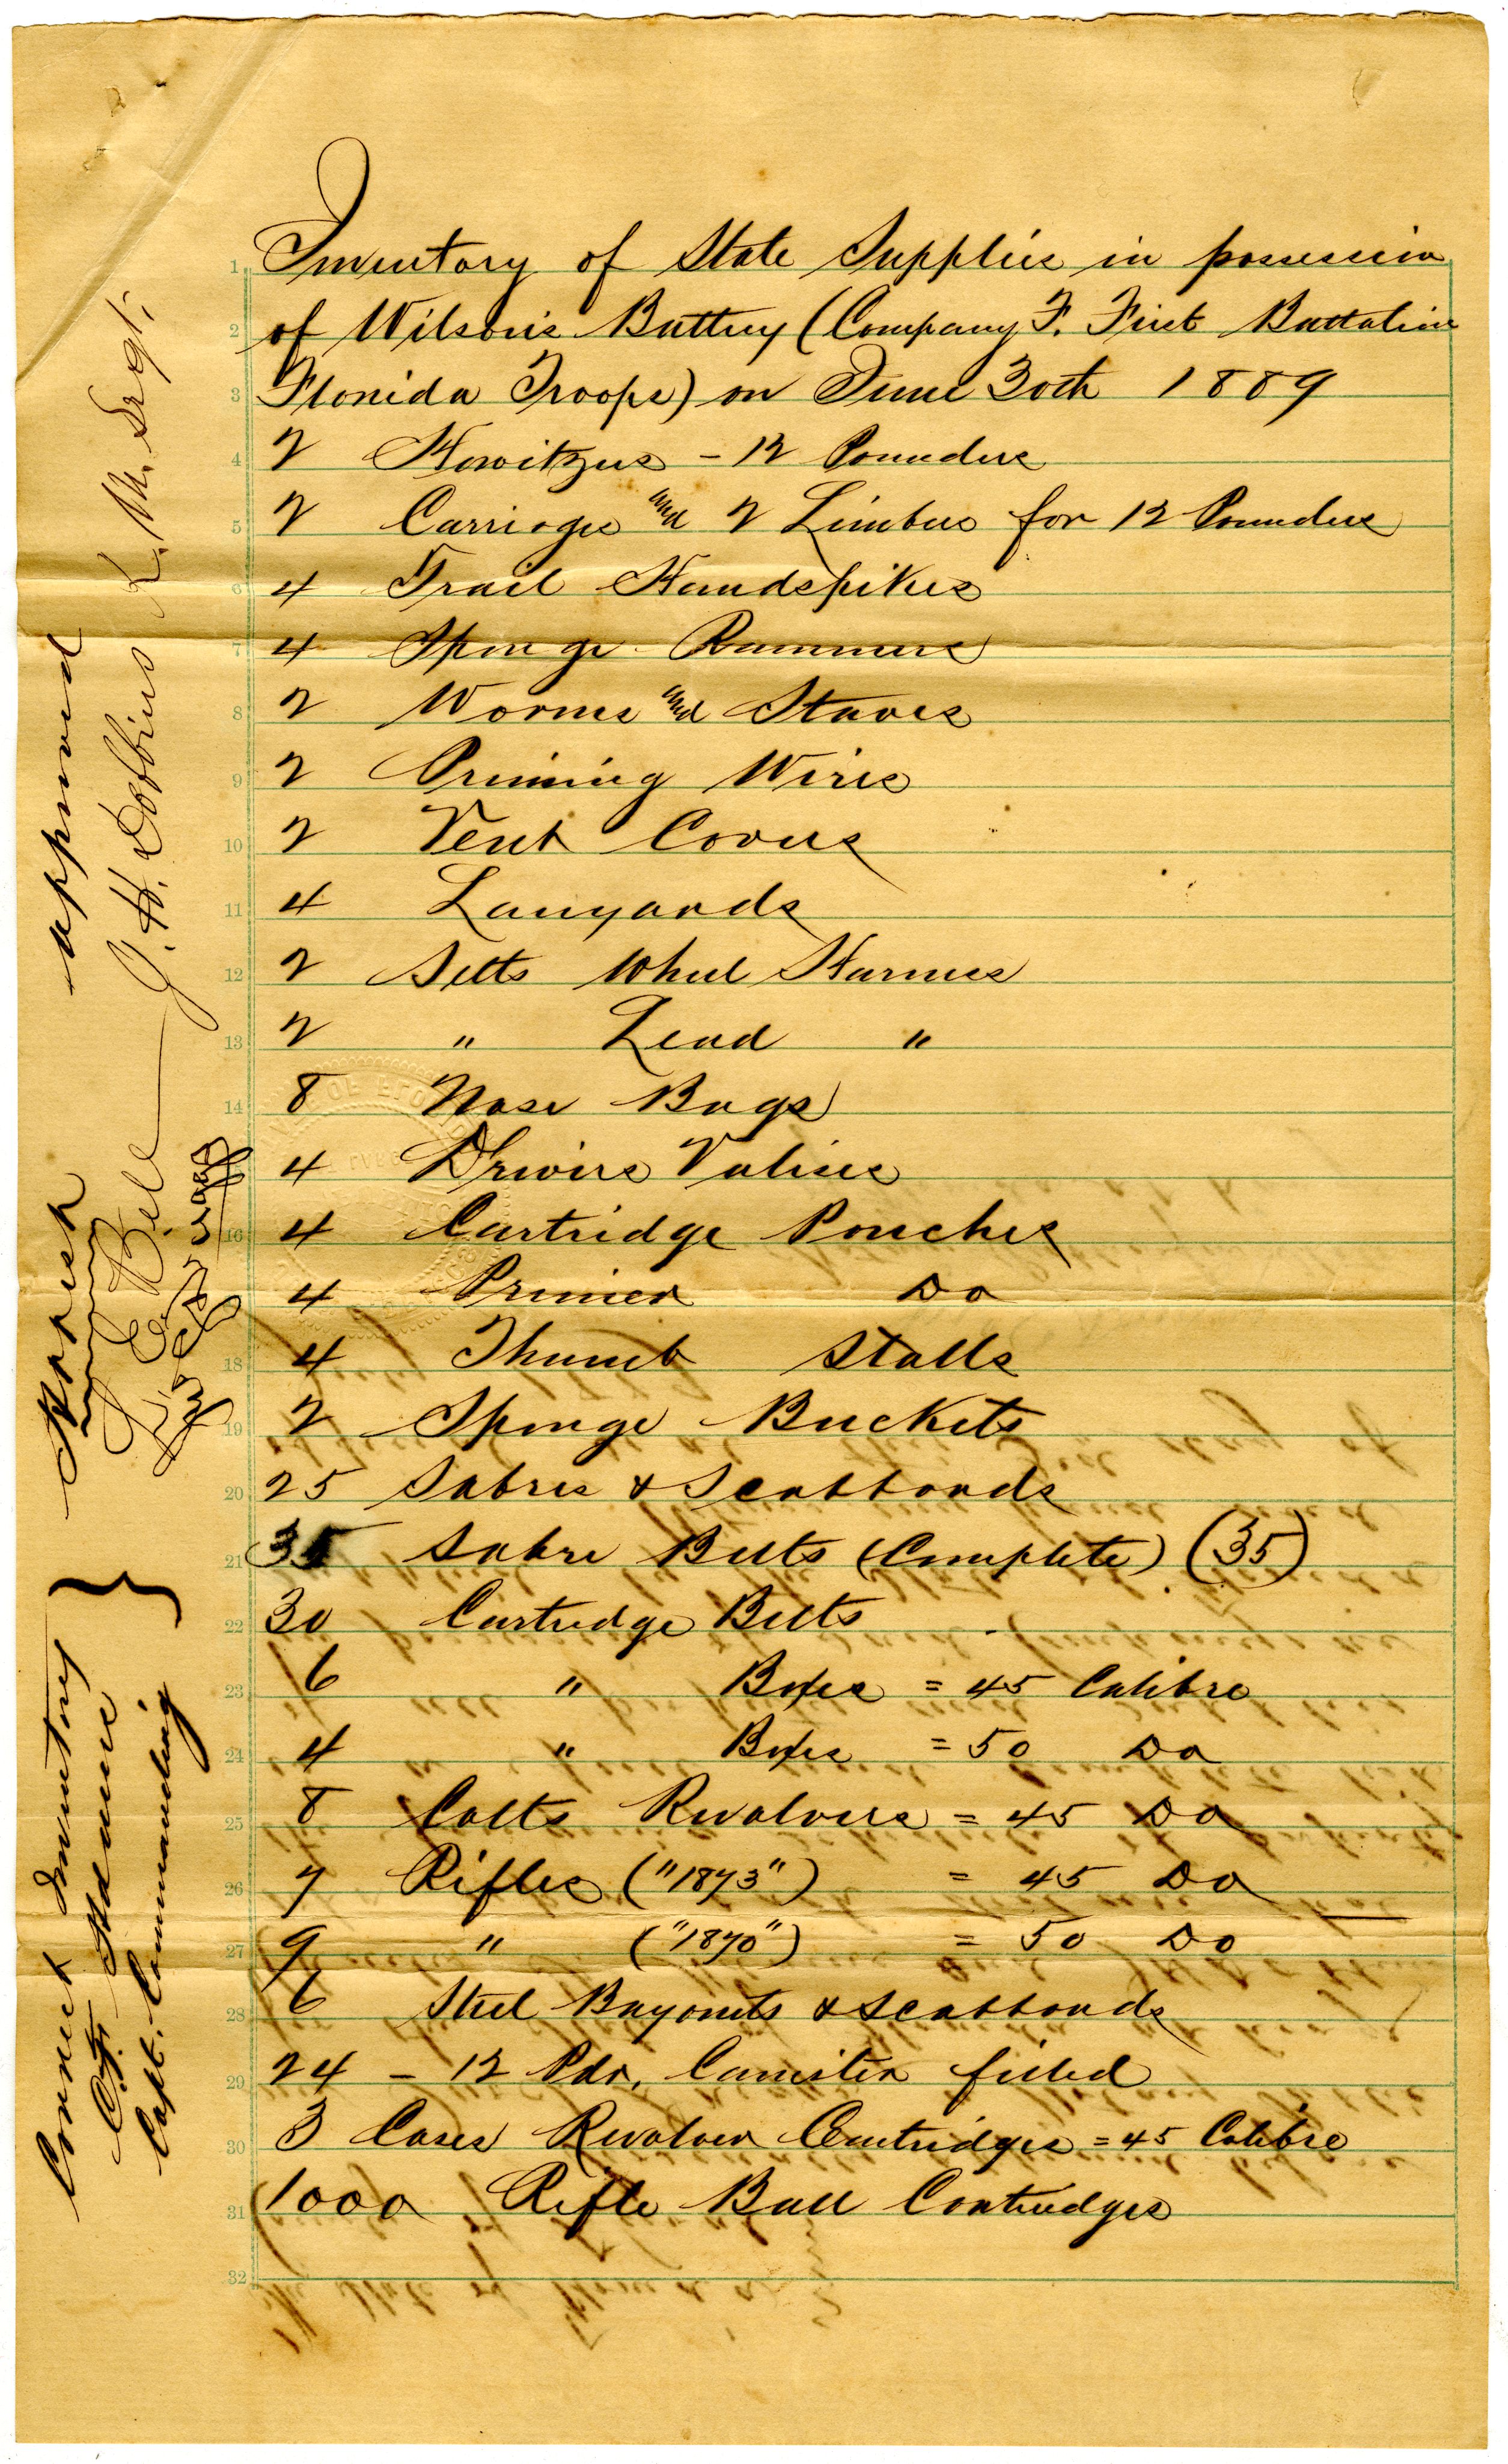 Inventory of State Supplies in possession
of Wilson's Battery (Company F. First Battalion
Florida Troops) on June 30th 1889
2 Howitzers - 12 Pounders
2 Carriages and 2 Limbers for 12 Pounders
4 Trail Handspikes
4 Sponge Rammers
2 Worms and Staves
2 Priming Wires
2 Vent Covers
4 Lanyards
2 Setts Wheel Harness
2 " Lead "
8 Nose Bags
4 Drivers Valises
4 Cartridge Pouches
4 Primer Do
4 Thumb Stalls
2 Sponge Buckets
25 Sabres & Scabbards
35 Sabre Belts (Complete) (35)
30 Cartridge Belts
6 " Boxes = 45 Calibre
4 " Boxes = 50 Do
8 Colts Revolvers = 45 Do
7 Rifles ("1873") = 45 Do
9 " ("1870") = 50 Do
6 Steel Bayonets & Scabbards
24 - 12 Pdr. Canister filled
3 Cases Revolver Cartridges = 45 Calibre
1000 Rifle Ball Cartridges
Correct Inventory
C. F. Adams
Capt. Commanding
approved
J. H. Dobbins
1
2
3
4
5
6
7
8
9
10
11
12
13
14
16
18
19
20
21
22
23
24
25
26
27
28
29
30
31
32